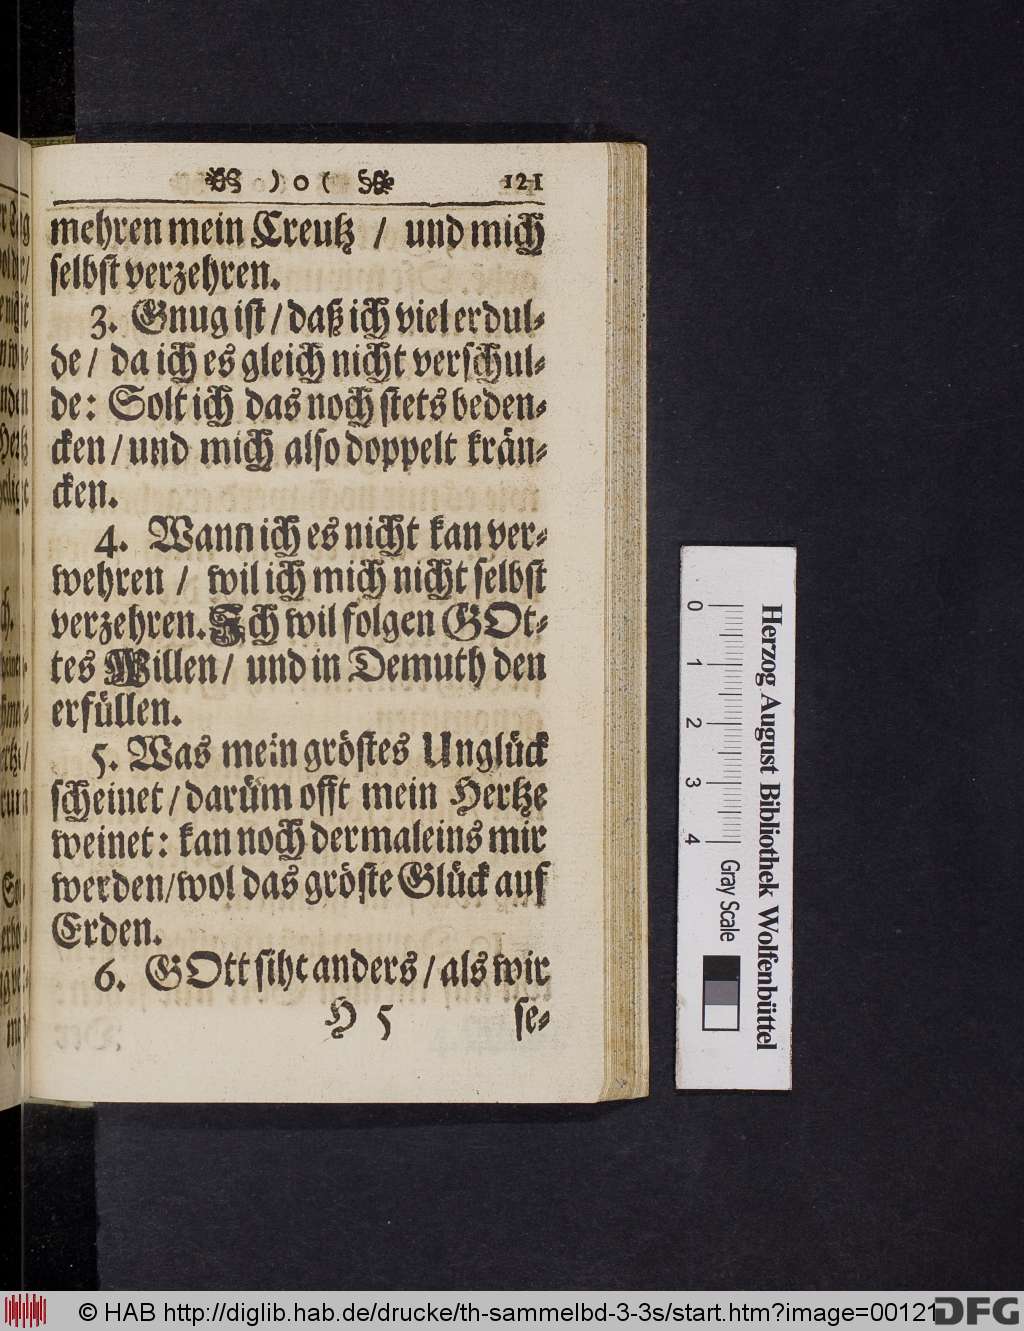 ) o ( 121
mehren mein Creutz / und mich
selbst verzehren.
3. Gnug ist / daß ich viel erdul-
de / da ich es gleich nicht verschul-
de: Solt ich das noch stets beden-
cken / und mich also doppelt krän-
cken.
4. Wann ich es nicht kan ver-
wehren / wil ich mich nicht selbst
verzehren. Ich wil folgen GOt-
tes Willen / und in Demuth den
erfüllen.
5. Was mein gröstes Unglück
scheinet / darüm offt mein Hertze
weinet: kan noch dermaleins mir
werden / wol das gröste Glück auf
Erden.
6. GOtt siht anders / als wir
H 5 se-
Herzog August Bibliothek Wolfenbüttel
0 1 2 3 4 Gray Scale
© HAB http://diglib.hab.de/drucke/th-sammelbd-3-3s/start.htm?image=00121
DFG